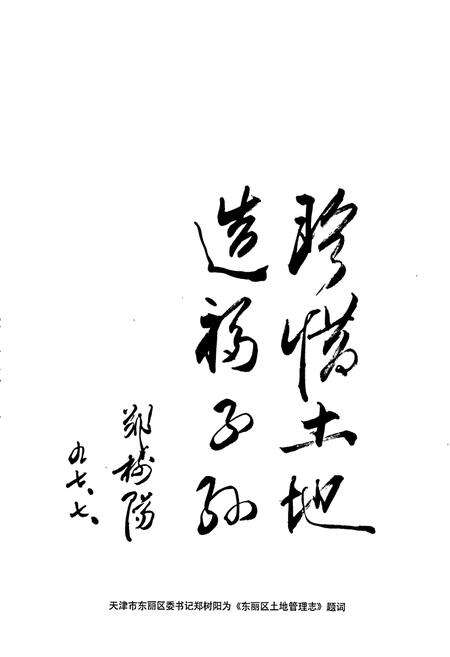 珍惜土地
造福子孙
郑树阳
九七、七、
天津市东丽区委书记郑树阳为《东丽区土地管理志》题词